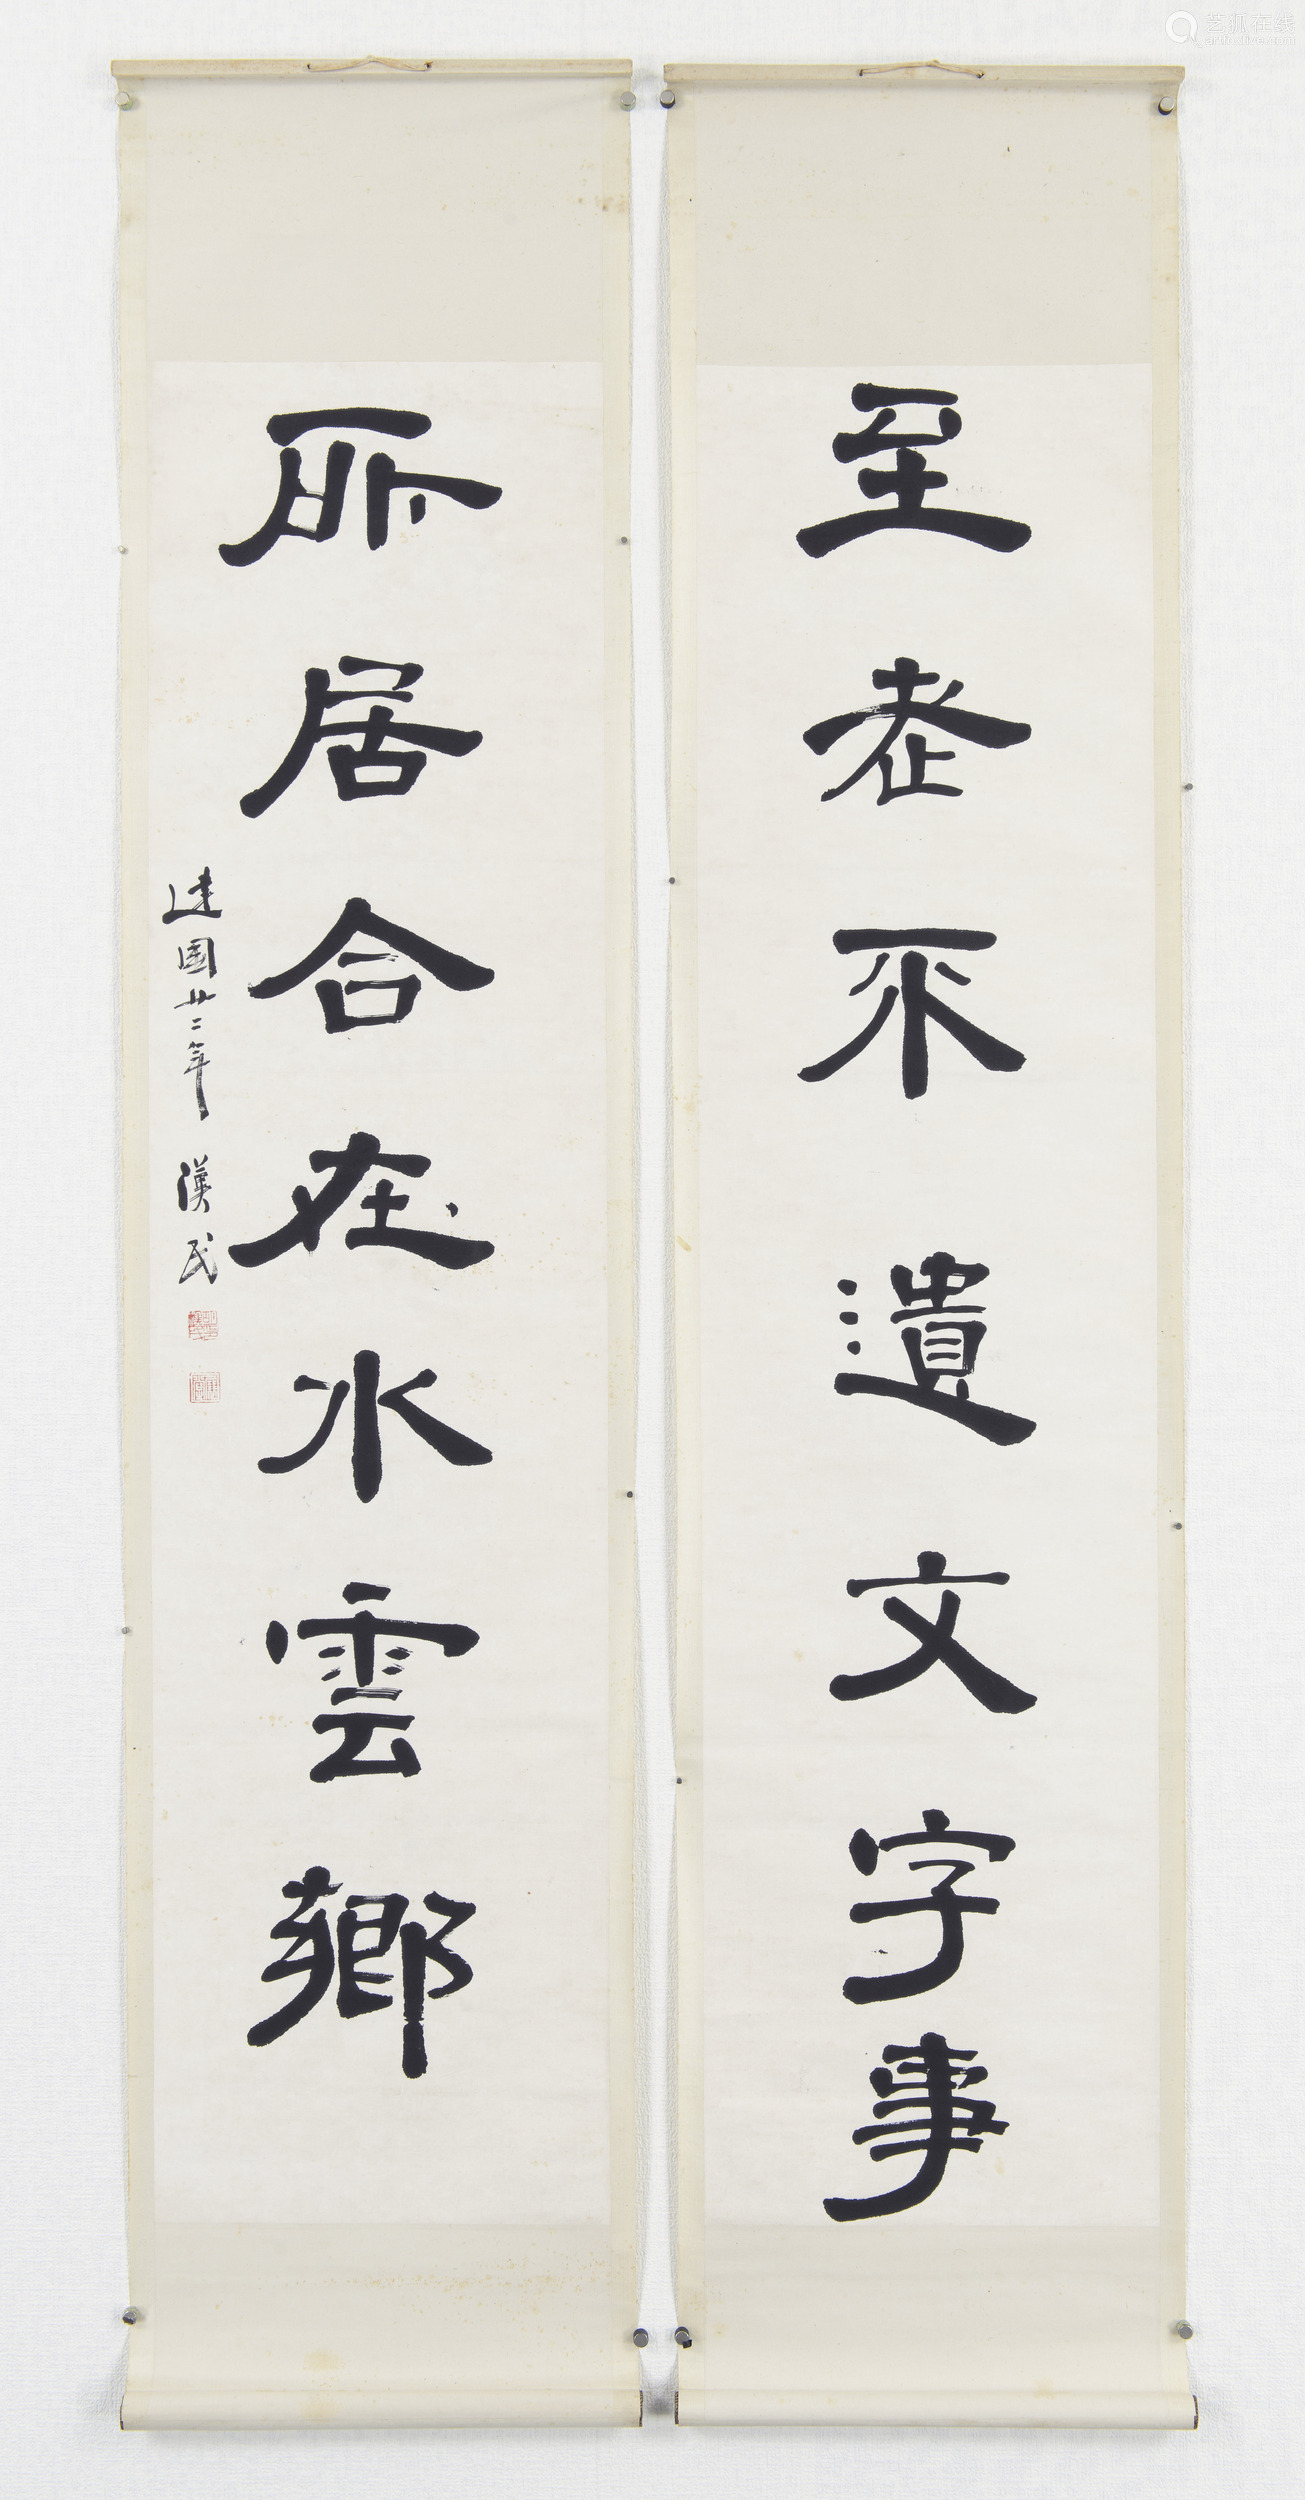 至老不遺文字事
所居合在水雲鄉
建國廿二年 漢民
艺狐在线
artfoxlive.com